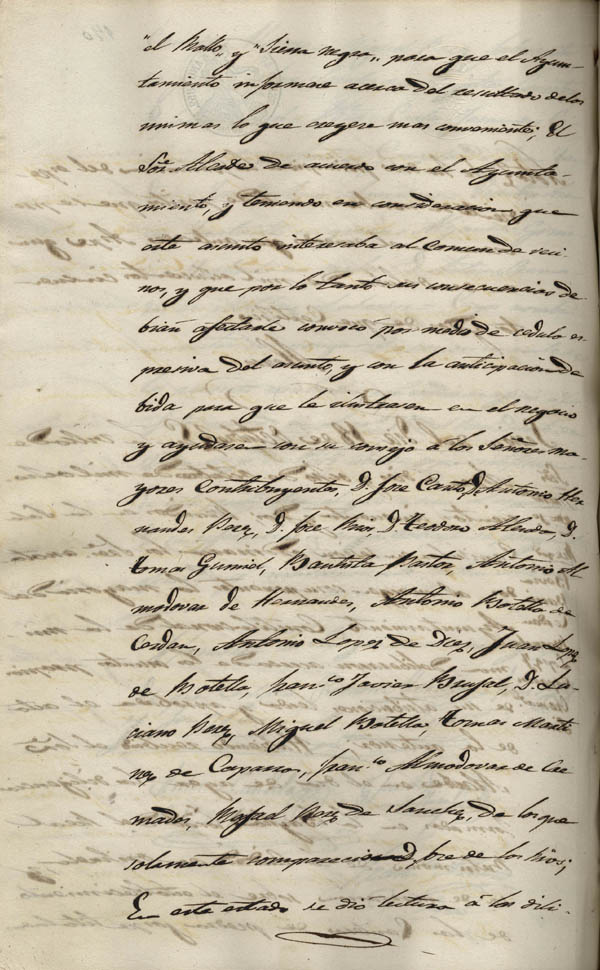 "el Mollo", y "Sierra negra", para que el Ayun-
tamiento informare acerca del resultado de los
mismas lo que creyere mas conveniente; El
Sor. Alcalde de acuerdo con el Ayunta-
miento, y teniendo en consideracion que
este asunto interesaba al comun de veci-
nos, y que por lo tanto sus consecuencias de
bian afectarle convocó por medio de cedula es-
presiva del asunto, y con la anticipacion de
bida para que le ilustrasen en el negocio
y ayudase con su consejo à los Señores ma-
yores Contribuyentes, D. Jose D. Antonio Her-
nandes Perez, D. Jose D. Teodoro D.
Tomas Gumiel, Bautista Pastor, Antonio Al
modovar de Hernandes, Antonio Botella de
Cerdan, Antonio Lopez de Diez, Juan Lopez
de Botella, Franco. Javier D. Lu-
ciano Perez, Miguel Botella, Tomas Marti
nez de Caparros, Franco. Almodovar de
Rafael de Sanchez, de los que
solamente D. Jose de los
En este estado se dió lectura à las dili-